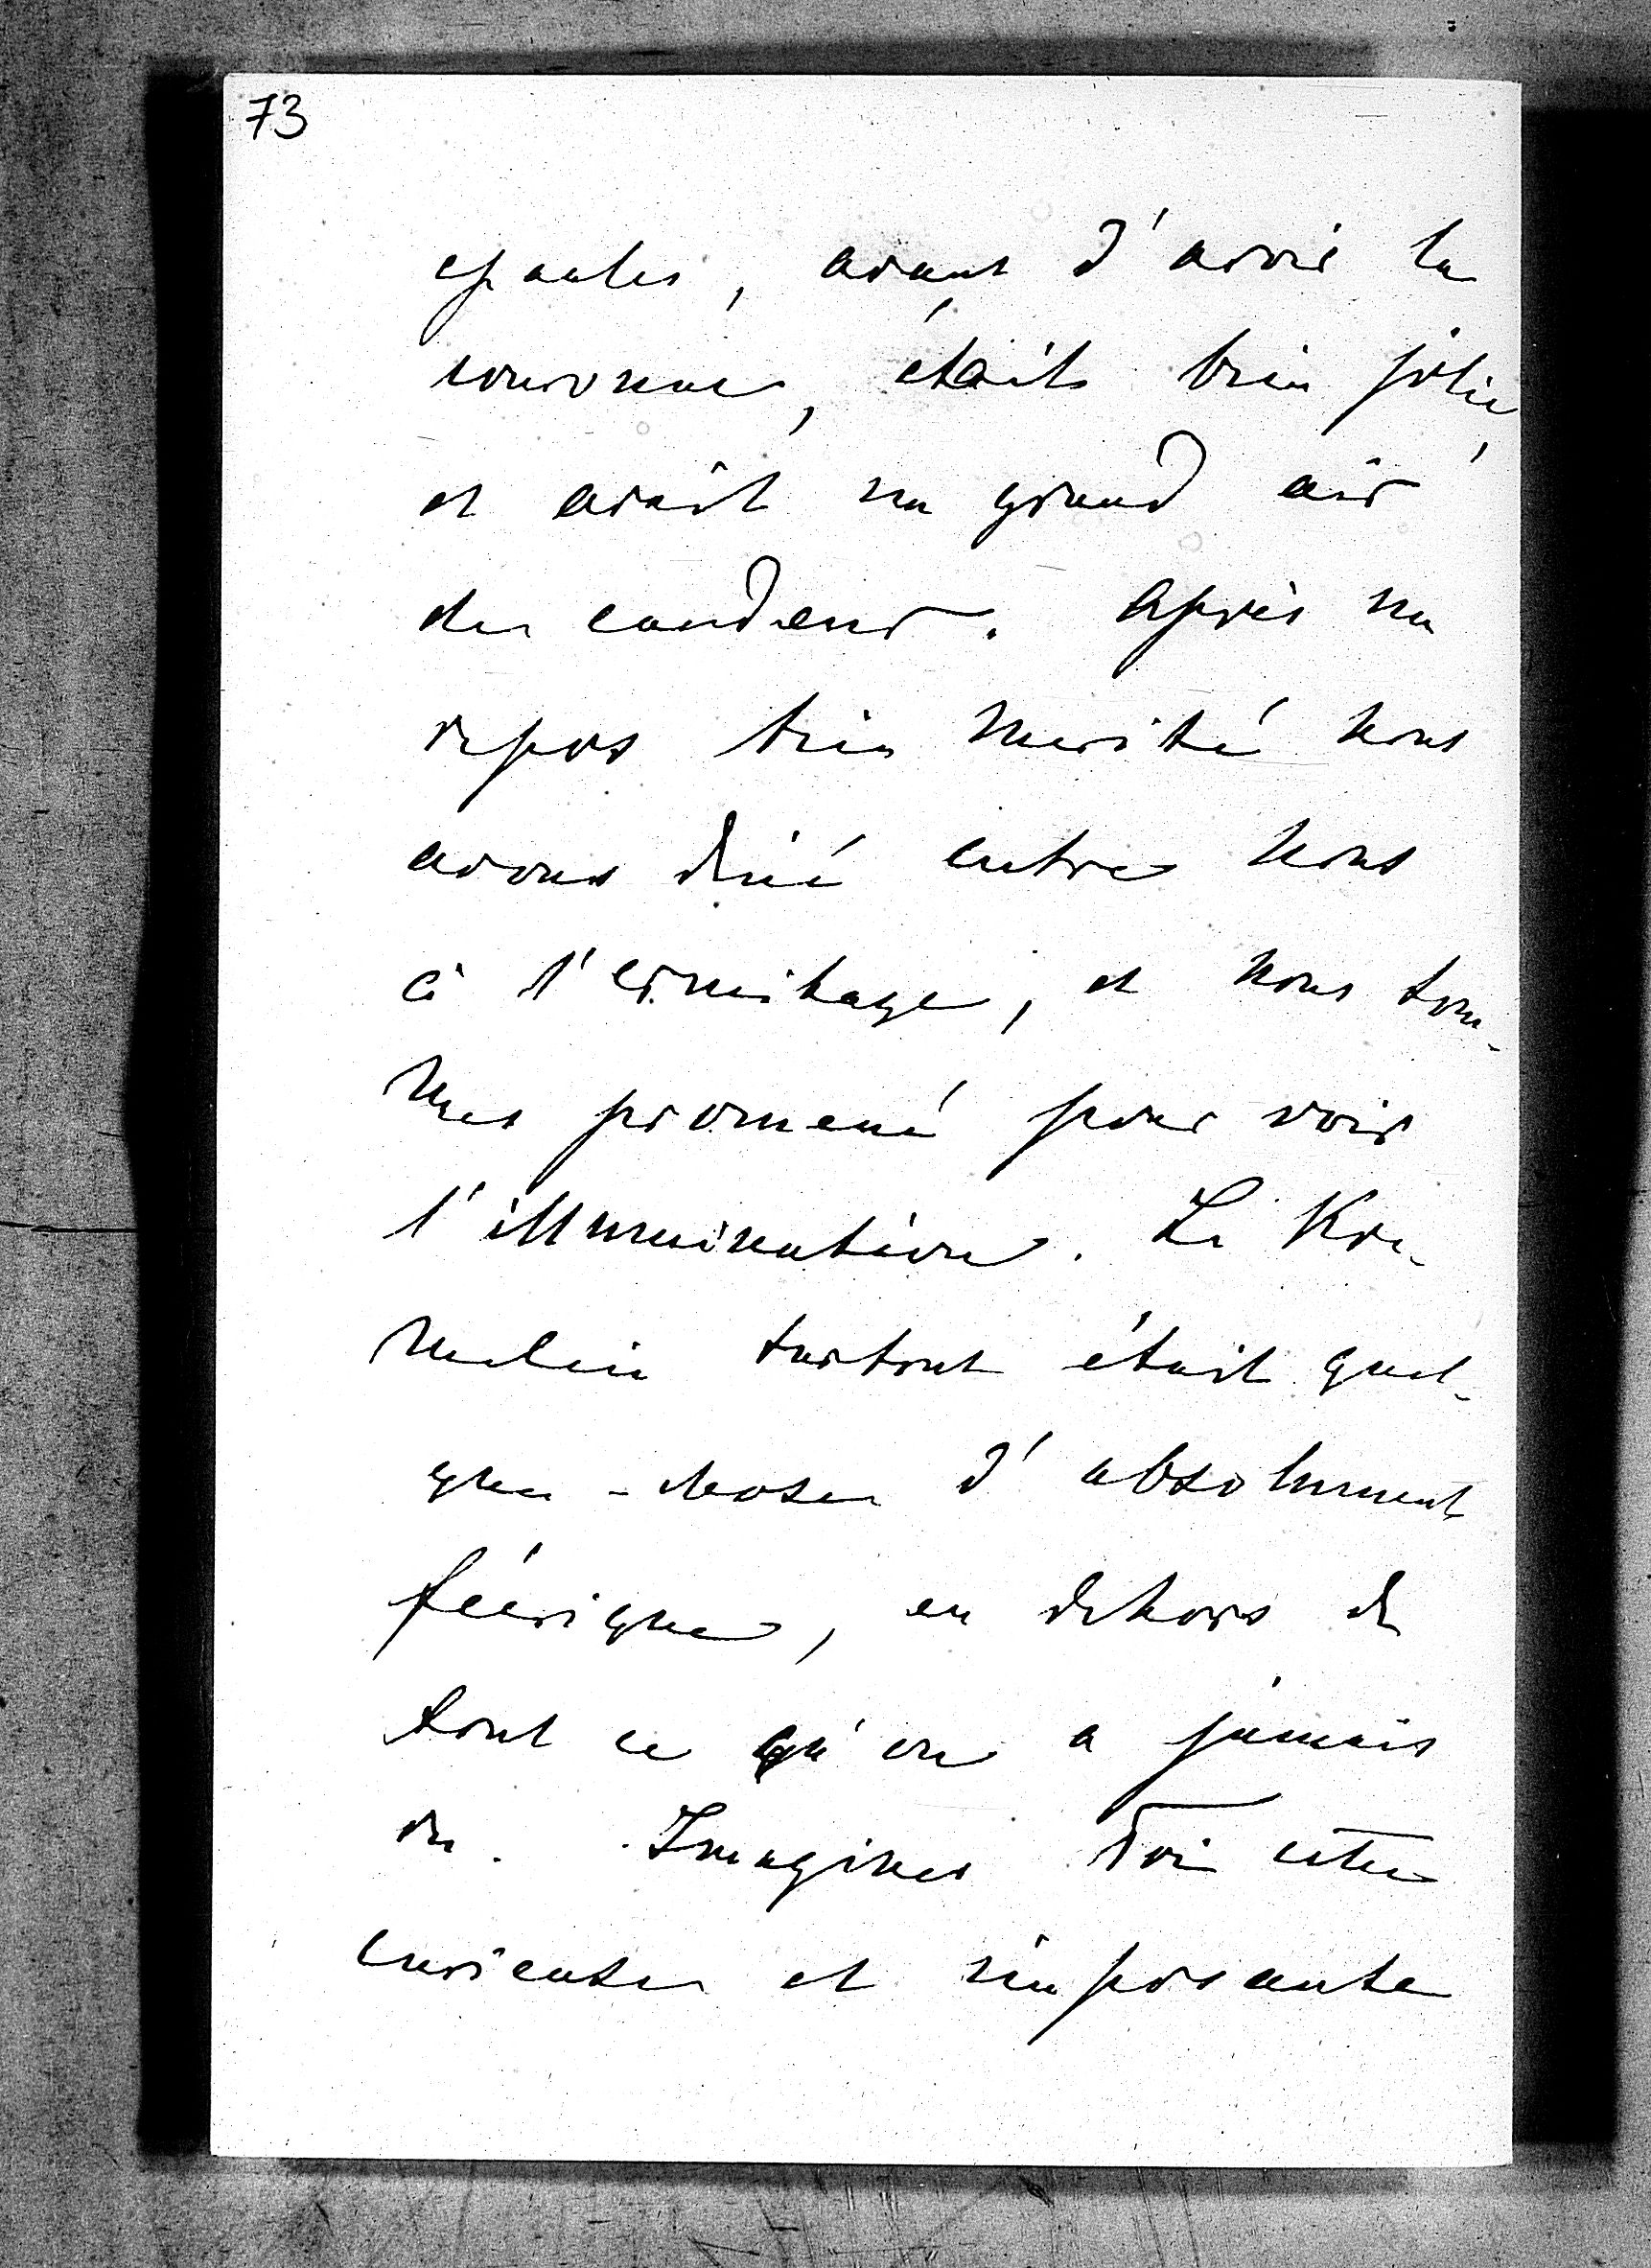 73
epaules, avant d'avoir la
couronne, était bien jolie,
et avait un grand air
de candeur. Après un
repos bien merité nous
avons diné entre nous
à l'ermitage, et nous som-
mes promené pour voir
l'illumination. Le Kre-
melin surtout était quel-
que-chose d'absolument
féerique, en dehors de
tout ce qu'on a jamais
vu. Imagines Toi cette
curieuse et imposante